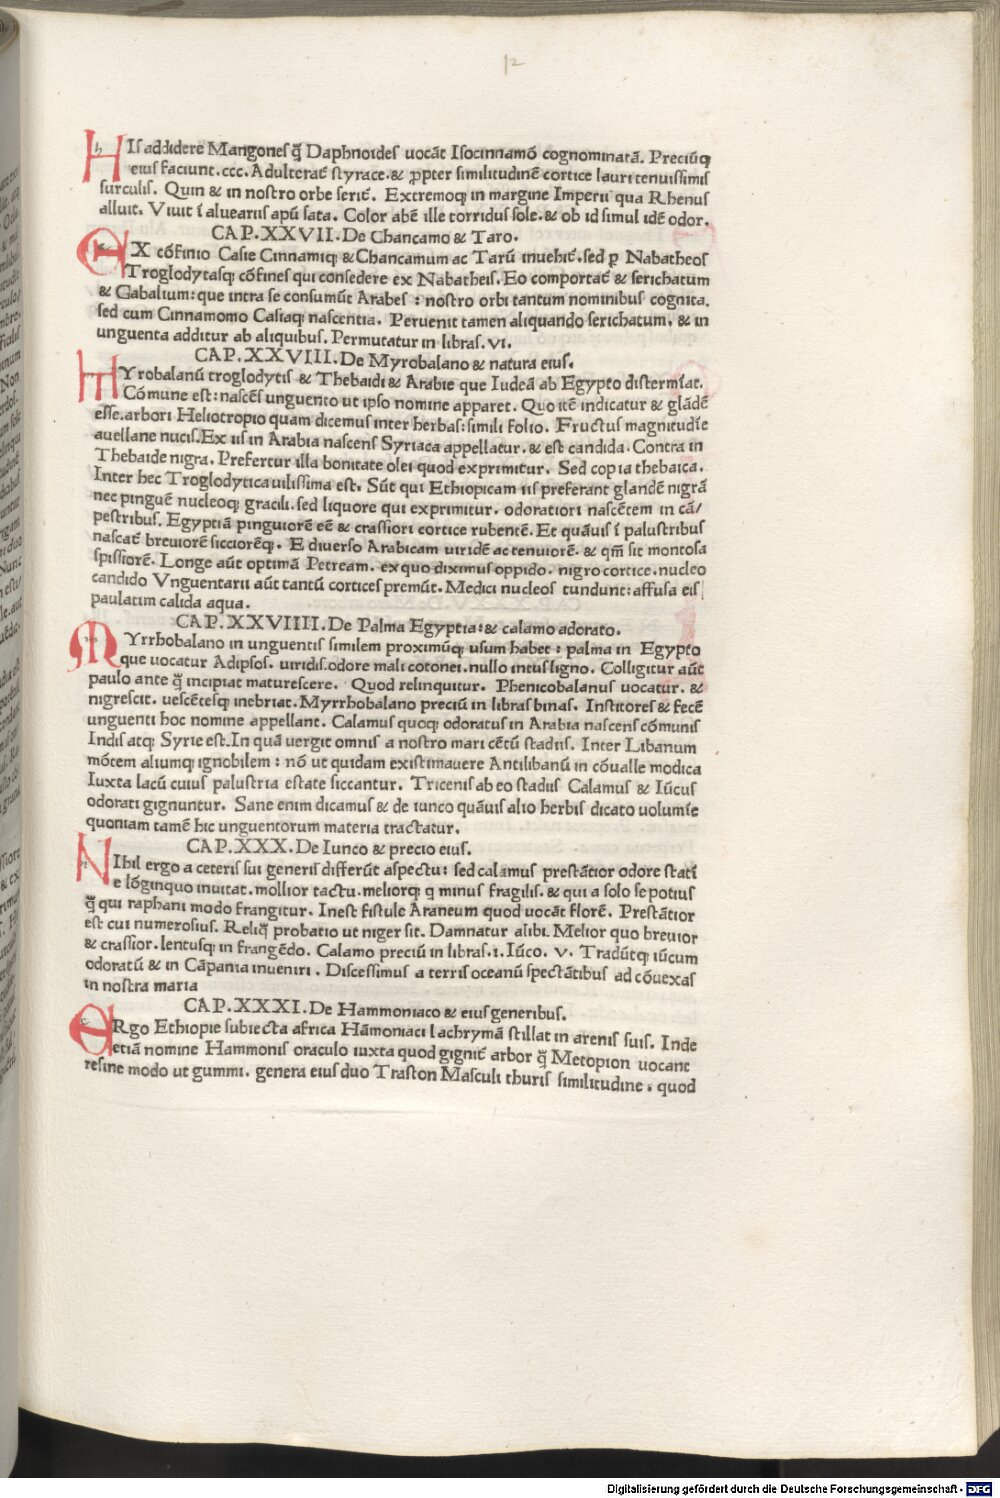 12
HIS addidere Mangones q̃ Daphnoides uocāt Isocinnamō cognominatā. Preciūq;
eius faciunt.ccc. Adulterat̃ styrace.& ꝓpter similitudinē cortice lauri tenuissimis
surculis. Quin & in nostro orbe serit̃. Extremoq; in margine Imperii qua Rhenus
alluit. Viuit ī aluearüs apū sata. Color abē ille torridus sole.& ob id simul idē odor.
CAP.XXVII.De Chancamo & Taro.
EX cōfinio Casie Cinnamiq; & Chancamum ac Tarū inuehit̃.sed ꝑ Nabatheos
Troglodytasq; cōfines qui consedere ex Nabatheis. Eo comportat̃ & serichatum
& Gabalium: que intra se consumūt Arabes : nostro orbi tantum nominibus cognita.
sed cum Cinnamomo Casiaq; nascentia. Peruenit tamen aliquando serichatum. & in
unguenta additur ab aliquibus. Permutatur in libras.VI.
CAP.XXVIII.De Myrobalano & natura eius.
MYrobalanū troglodytis & Thebaidi & Arabie que Iudeā ab Egypto distermīat.
Cōmune est: nascēs unguento ut ipso nomine apparet. Quo itē indicatur & glādē
esse.arbori Heliotropio quam dicemus inter herbas: simili folio. Fructus magnitudīe
auellane nucis.Ex iis in Arabia nascens Syriaca appellatur.& est candida. Contra in
Thebaide nigra. Prefertur illa bonitate olei quod exprimitur. Sed copia thebaica.
Inter hec Troglodytica uilissima est. Sūt qui Ethiopicam iis preferant glandē nigrā
nec pinguē nucleoq; gracili.sed liquore qui exprimitur. odoratiori nascētem in cā/
pestribus. Egyptiā pinguiorē eē & crassiori cortice rubentē. Et quāuis ī palustribus
nascat̃ breuiorē sicciorēq;. E diuerso Arabicam uiridē ac tenuiorē. & qm̄ sit montosa
spissiorē. Longe aūt optimā Petream. ex quo diximus oppido. nigro cortice.nucleo
candido Vnguentarii aūt tantū cortices premūt. Medici nucleos tundunt: affusa eis
paulatim calida aqua.
CAP.XXVIIII.De Palma Egyptia:& calamo adorato.
MYrrhobalano in unguentis similem proximūq; usum habet : palma in Egypto
que uocatur Adipsos. uiridis.odore mali cotonei.nullo intus ligno. Colligitur aūt
paulo ante q̃ incipiat maturescere. Quod relinquitur. Phenicobalanus uocatur. &
nigrescit. uescētesq; inebriat. Myrrhobalano preciū in libras binas. Institores & fecē
unguenti hoc nomine appellant. Calamus quoq; odoratus in Arabia nascens cōmunis
Indis atq; Syrie est.In quā uergit omnis a nostro mari cētū stadiis. Inter Libanum
mōtem aliumq; ignobilem : nō ut quidam existimauere Antilibanū in cōualle modica
Iuxta lacū cuius palustria estate siccantur. Tricenis ab eo stadiis Calamus & Iūcus
odorati gignuntur. Sane enim dicamus & de iunco quāuis alio herbis dicato uolumīe
quoniam tamē hic unguentorum materia tractatur.
CAP.XXX.De Iunco & precio eius.
NIhil ergo a ceteris sui generis differūt aspectu: sed calamus prestātior odore statī
e lōginquo inuitat. mollior tactu.meliorq; q minus fragilis. & qui a solo se potius
q̃ qui raphani modo frangitur. Inest fistule Araneum quod uocāt florē. Prestātior
est cui numerosius. Reliq̃ probatio ut niger sit. Damnatur alibi. Melior quo breuior
& crassior.lentusq; in frangēdo. Calamo preciū in libras.I.Iūco. V. Tradūtq; iūcum
odoratū & in Cāpania inueniri. Discessimus a terris oceanū spectātibus ad cōuexas
in nostra maria
CAP.XXXI.De Hammoniaco & eius generibus.
ERgo Ethiopie subiecta africa Hāmoniaci lachrymā stillat in arenis suis. Inde
etiā nomine Hammonis oraculo iuxta quod gignit̃ arbor q̃ Metopion uocant
resine modo ut gummi. genera eius duo Traston Masculi thuris similitudine. quod
Digitalisierung gefördert durch die Deutsche Forschungsgemeinschaft - DFG